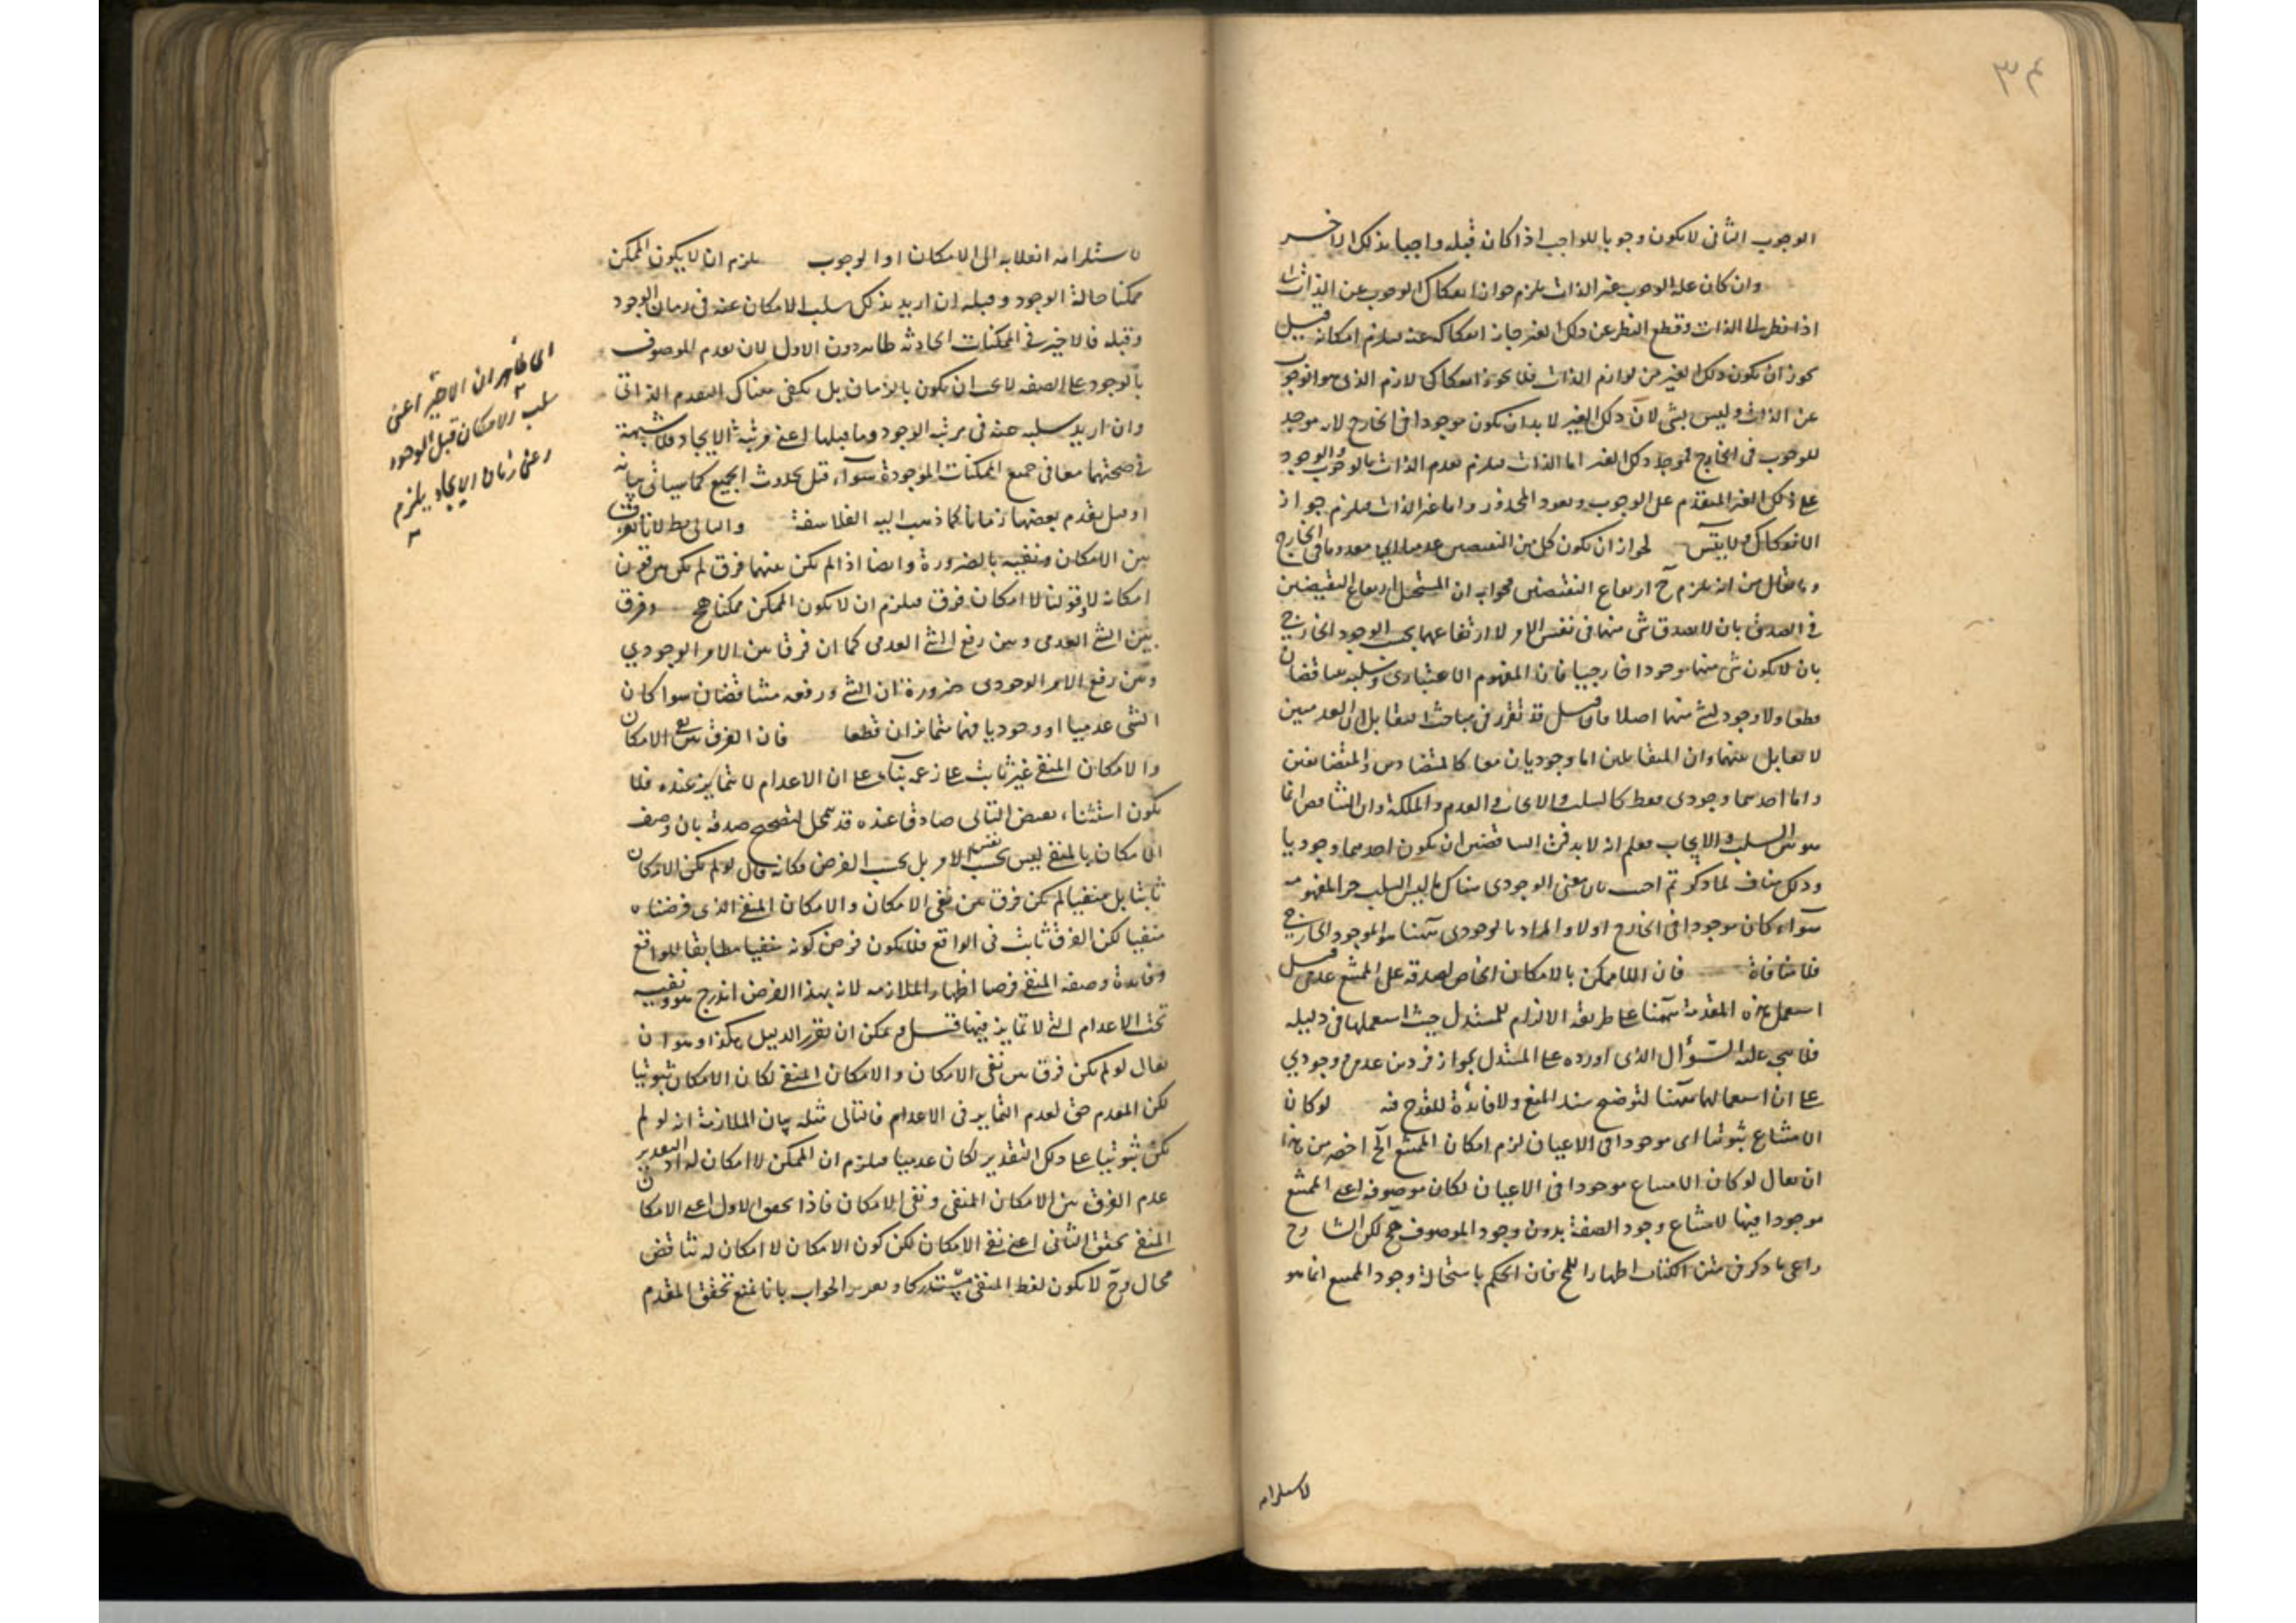 ٣٤
الوجوب الثانى لا يكون وجوبا للواجب اذا كان قبله واجبا بذلك الاخر
وان كان علة الوجوب غير الذات يلزم جواز انفكاك الوجوب عن الذات لانا
اذا نظرنا الى الذات وقطع النظر عن ذلك الغير جاز انفكاكه عنه فيلزم امكانه قيل
يجوز ان يكون ذلك الغير من لوازم الذات فلا يجوز انفكاك لازم الذى هو الوجوب
عن الذات وليس بشى لان ذلك الغير لا بد ان يكون موجودا فى الخارج لانه موجد
للوجوب فى الخارج فموجد ذلك الغير اما الذات فيلزم تقدم الذات بالوجوب والوجود
على ذلك الغير المتقدم على الوجوب ويعود المحذور واما غير الذات فيلزم جواز
الانفكاك ولا يتس لجواز ان يكون كل من النقيضين عدميا اى معدوما فى الخارج
وما يقال من انه يلزم ح ارتفاع النقيضين فجوابه ان المستحيل ارتفاع النقيضين
فى الصدق بان لا يصدق شى منهما فى نفس الامر لا ارتفاعهما بحسب الوجود الخارجى
بان لا يكون شى منهما موجودا خارجيا فان المفهوم الاعتبارى وسلبه يتناقضان
قطعا ولا وجود لشئ منهما اصلا فان قيل قد تقرر فى مباحث التقابل ان العدميين
لا تقابل بينهما وان المتقابلين اما وجوديان معا كالمتضادين والمتضايفين
واما احدهما وجودى فقط كالسلب والايجاب والعدم والملكة وان التناقض انما
هو بين السلب والايجاب فعلم انه لا بد فى المتناقضين ان يكون احدهما وجوديا
وذلك مناف لما ذكرتم اجيب بان معنى الوجودى هناك ما ليس السلب جزء المفهومه
سواء كان موجودا فى الخارج او لا والمراد بالوجودى ههنا هو الموجود الخارجى
فلا منافاة فان اللاممكن بالامكان الخاص لصدقه على الممتنع عدمى قيل
استعمل هذه المقدمة ههنا على طريقة الالزام للمستدل حيث استعملها فى دليله
فلا يتجه عليه السؤال الذى اورده على المستدل بجواز فرد من عدمى وجودي
على ان استعمالها ههنا لتوضيح سند المنع ولا فائدة للقدح فيه لو كان
الامتناع ثبوتيا اى موجودا فى الاعيان لزم امكان الممتنع الخ اخصر من هذا
ان يقال لو كان الامتناع موجودا فى الاعيان لكان موصوفه اعنى الممتنع
موجودا فيها لامتناع وجود الصفة بدون وجود الموصوف ح لكن الشارح
راعى ما ذكر فى متن الكتاب اظهارا للخ فان الحكم باستحالة وجود الممتنع انما هو
لاستلزامه
لاستلزامه انقلابه الى الامكان او الوجوب يلزم ان لا يكون الممكن
ممكنا حالة الوجود وقبله ان اريد بذلك سلب الامكان عنه فى زمان الوجود
وقبله فالاخير فى الممكنات الحادثة ظاهر دون الاول لان تقدم الموصوف
بالوجود على الصفة لا يجب ان يكون بالزمان بل يكفى هناك التقدم الذاتى
وان اريد سلبه عنه فى مرتبة الوجود وما قبلها اعنى مرتبة الايجاد فلا شبهة
فى صحتهما معا فى جميع الممكنات الموجودة سواء قيل بحدوث الجميع كما سيأتى بيانه
او قيل بقدم بعضها زمانا كما ذهب اليه الفلاسفة والتالى بط لانا نفرق
بين الامكان ونفيه بالضرورة وايضا اذا لم يكن بينهما فرق لم يكن بين قولنا
امكانه لا وقولنا لا امكان فرق فيلزم ان لا يكون الممكن ممكنا هج وفرق
بين الشئ العدمى وبين رفع الشئ العدمى كما ان فرقا بين الامر الوجودي
وبين رفع الامر الوجودى ضرورة ان الشئ ورفعه متناقضان سواء كان
الشى عدميا او وجوديا فهما متمايزان قطعا فان الفرق بين نفى الامكان
والامكان المنفى غير ثابت على زعمه بناء على ان الاعدام لا تمايز عنده فلا
يكون استثناء نقيض التالى صادقا عنده قد تمحل لتصحيح صدقه بان وصف
الامكان بالمنفى ليس بحسب نفس الامر بل بحسب الفرض فكانه قال لو لم يكن الامكان
ثابتا بل منفيا لم يكن فرق بين نفى الامكان والامكان المنفى الذى فرضناه
منفيا لكن الفرق ثابت فى الواقع فلا يكون فرض كونه منفيا مطابقا للواقع
وفائدة وصفه المنفى فرضا اظهار الملازمة لانه بهذا الفرض اندرج هو ونفيه
تحت الاعدام التى لا تمايز فيها قيل ويمكن ان يقرر الدليل هكذا وهو ان
يقال لو لم يكن فرق بين نفى الامكان والامكان المنفى لكان الامكان ثبوتيا
لكن المقدم حق لعدم التمايز فى الاعدام فالتالى مثله بيان الملازمة انه لو لم
يكن ثبوتيا على ذلك التقدير لكان عدميا فيلزم ان الممكن لا امكان له اذ التقدير
عدم الفرق بين الامكان المنفى ونفى الامكان فاذا تحقق الاول اعنى الامكان
المنفى تحقق الثانى اعنى نفى الامكان لكن كون الامكان لا امكان له تناقض
محال وح لا يكون لفظ المنفى مستدركا وتقرير الجواب بانا نمنع تحقق المقدم
اى ظاهر ان الاخير اعنى
سلب الامكان قبل الوجود
اعنى زمان الايجاد يلزم